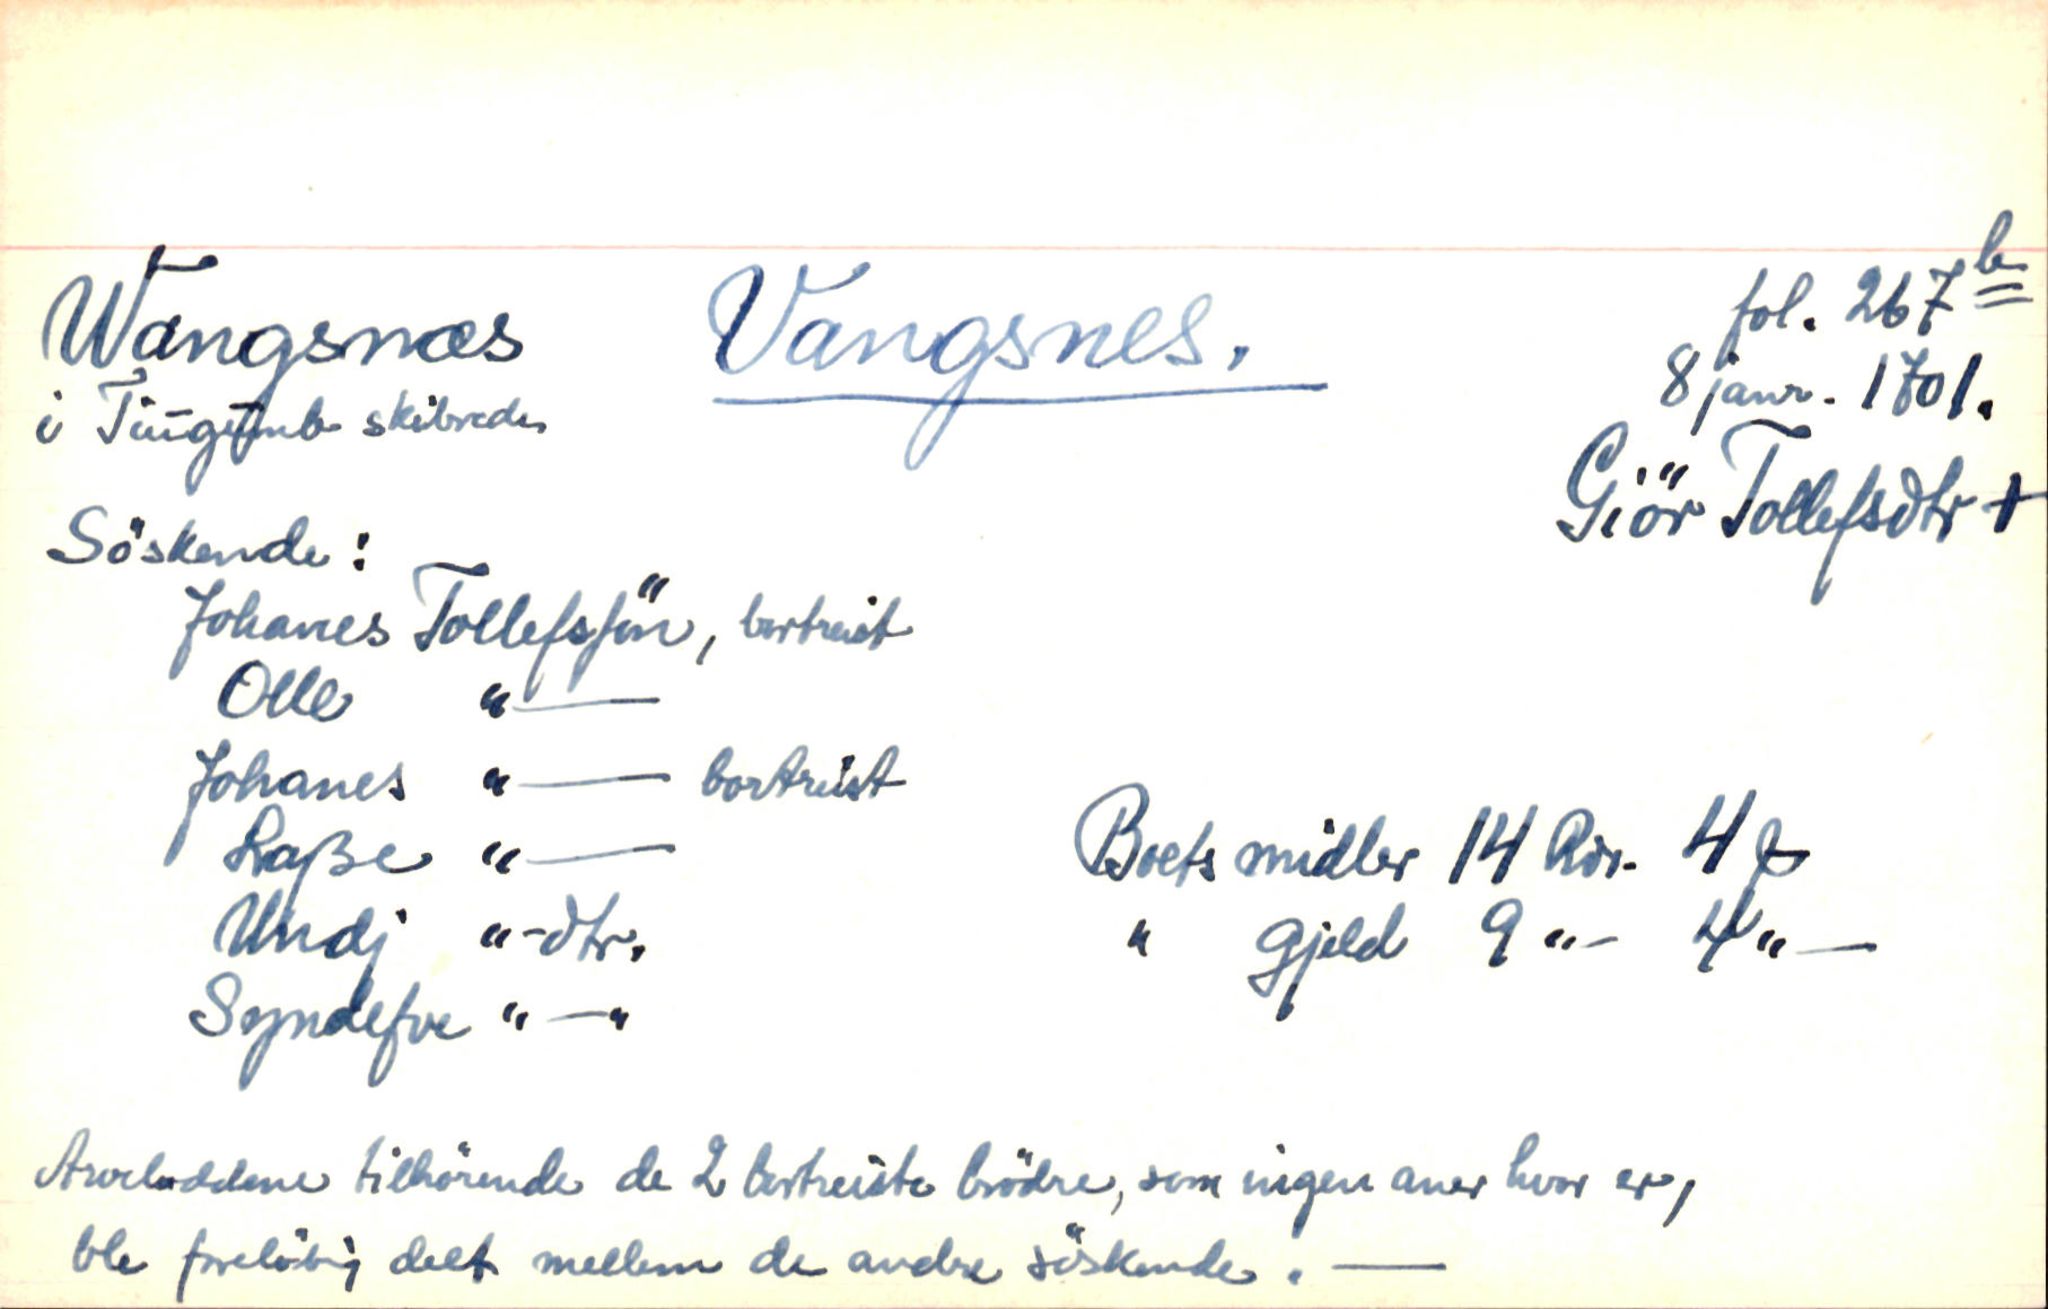 Wangsnæs Vangsnes. fol. 267b
i Tiugumb skibrede 8 janr. 1701.
Giör Tollefsdtr +
Söskende:
Johanes Tollefssön, bortreist
Olle "—
Johanes "— bortreist
Laße "—
Undj "-dtr.
Syndefve "—"
Boets midler 14 Rdr. 4 ß
" gjeld 9 "— 4 "—
Arveloddene tilhörende de 2 bortreiste brödre, som ingen aner hvor er,
ble forelöbig delt mellem de andre söskende. —